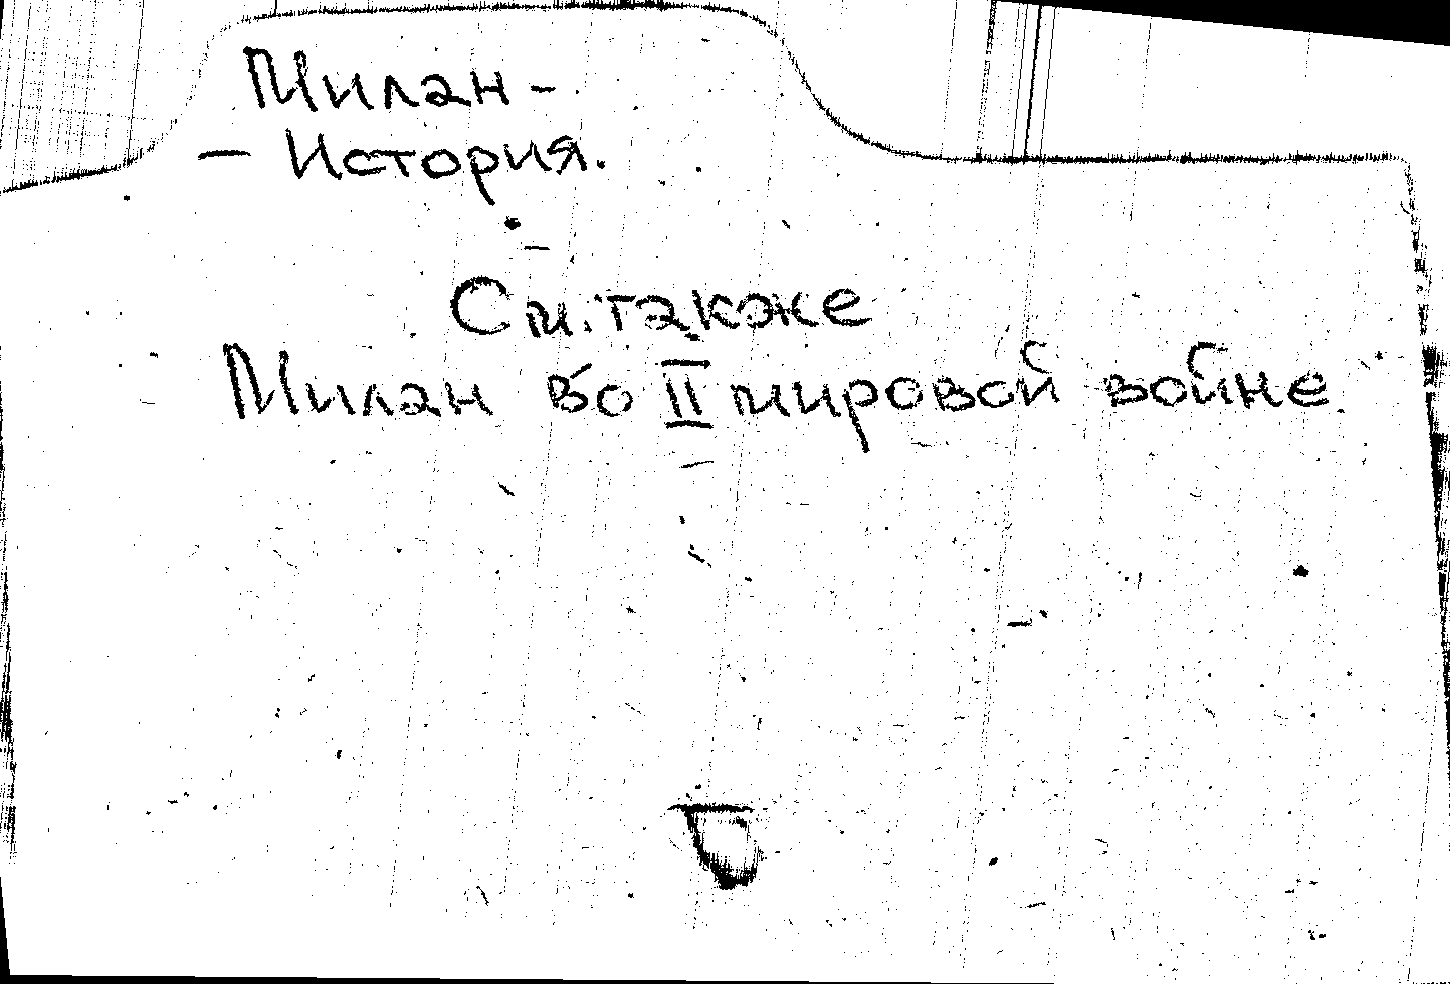 Милан -
- История.
См. также
Милан во II мировой войне